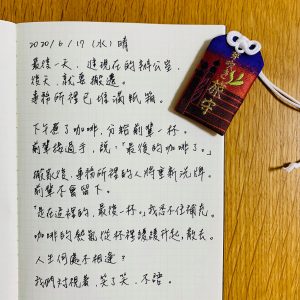 2020/6/17(水)晴
最後一天,進現在的辦公室,
後天就要搬遷。
事務所裡已堆滿紙箱。
下午煮了咖啡,分給前輩一杯。
前輩接過手,說:「最後的咖啡了。」
搬散後,事務所裡的人將重新洗牌。
前輩不會留下。
「是在這裡的,最後一杯。」我忍不住補充。
咖啡的熱氣從杯裡緩緩升起,散去。
人生何處不相逢?
我們對視著,笑了笑,不語。
守